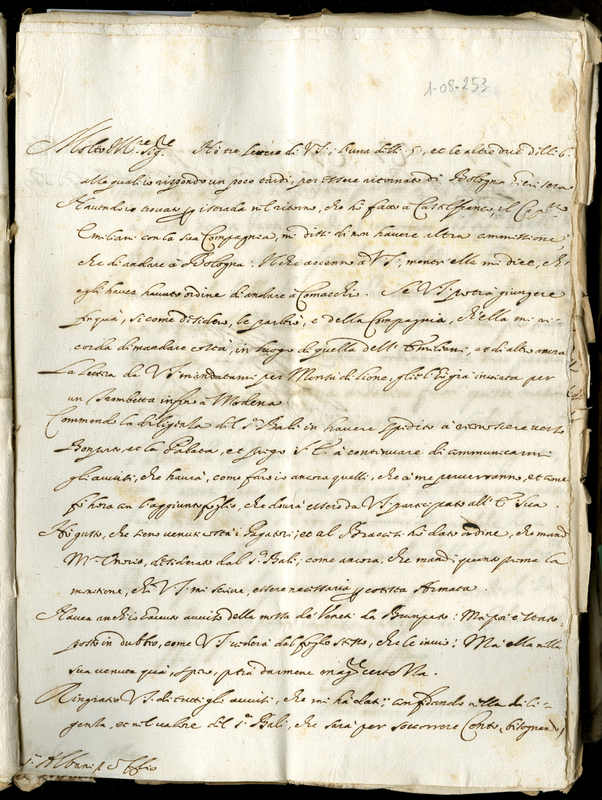 1-08-253
Molto Ill.re Sig.re Hò tre lettere di VS; l'una delli 5, et le altre due delli 6
alle quali io rispondo un poco tardi, per essere ritornato di Bologna hieri sera
Havend'io trovato per istrada nel ritorno, che hò fatto à Castelfranco, il Cap.no
Emiliani con la sua Compagnia, mi disse di non havere altra commissione,
che di andare à Bologna: Il che accenno à VS; mentr'ella mi dice, ch'
egli havea havuto ordine di andare à Comacchio. Se VS potrà giungere
fin quà, si come desidero, le parlerò, e della Compagnia, ch'ella mi ri-
corda di mandare costà, in luogo di quella dell'Emiliani, et di altro ancora
La lettera di VS mandatami per Monsù di Lione, gli è già inviata per
un Trombetta infino à Modena.
Commendo la diligenza del s.r Balì in havere spedito à riconoscere verso
et la Palata, et prego S.S. à continuare di communicarmi
gli avvisi, che haurà, come farò io ancora quelli, che à me perverranno, et come
fò hora con l'aggiunto foglio, che dourà essere da VS participato all' Sua.
Hò gusto, che sieno venuti costà i Pagatori; et al Bracci si hà dato ordine, che mandi
M. Onorio, desiderato dal s.r Balì; come ancora, che mandi quanto prima la
monitione, che VS mi scrive, essere necessaria per cotesta Armata.
Havea anch'io havuto avviso della mossa de Veneti da : Ma poi è stato
posto in dubbio, come VS vederà dal foglio stesso, che le invio: Ma ella nella
sua venuta quà, spero, potrà darmene mag.r certezza.
Ringratio VS di tutti gli avvisi, che mi hà dati; confidando nella dili-
genza, et nel valore del s.r Balì, che sarà per soccorrere Cento, bisognando,